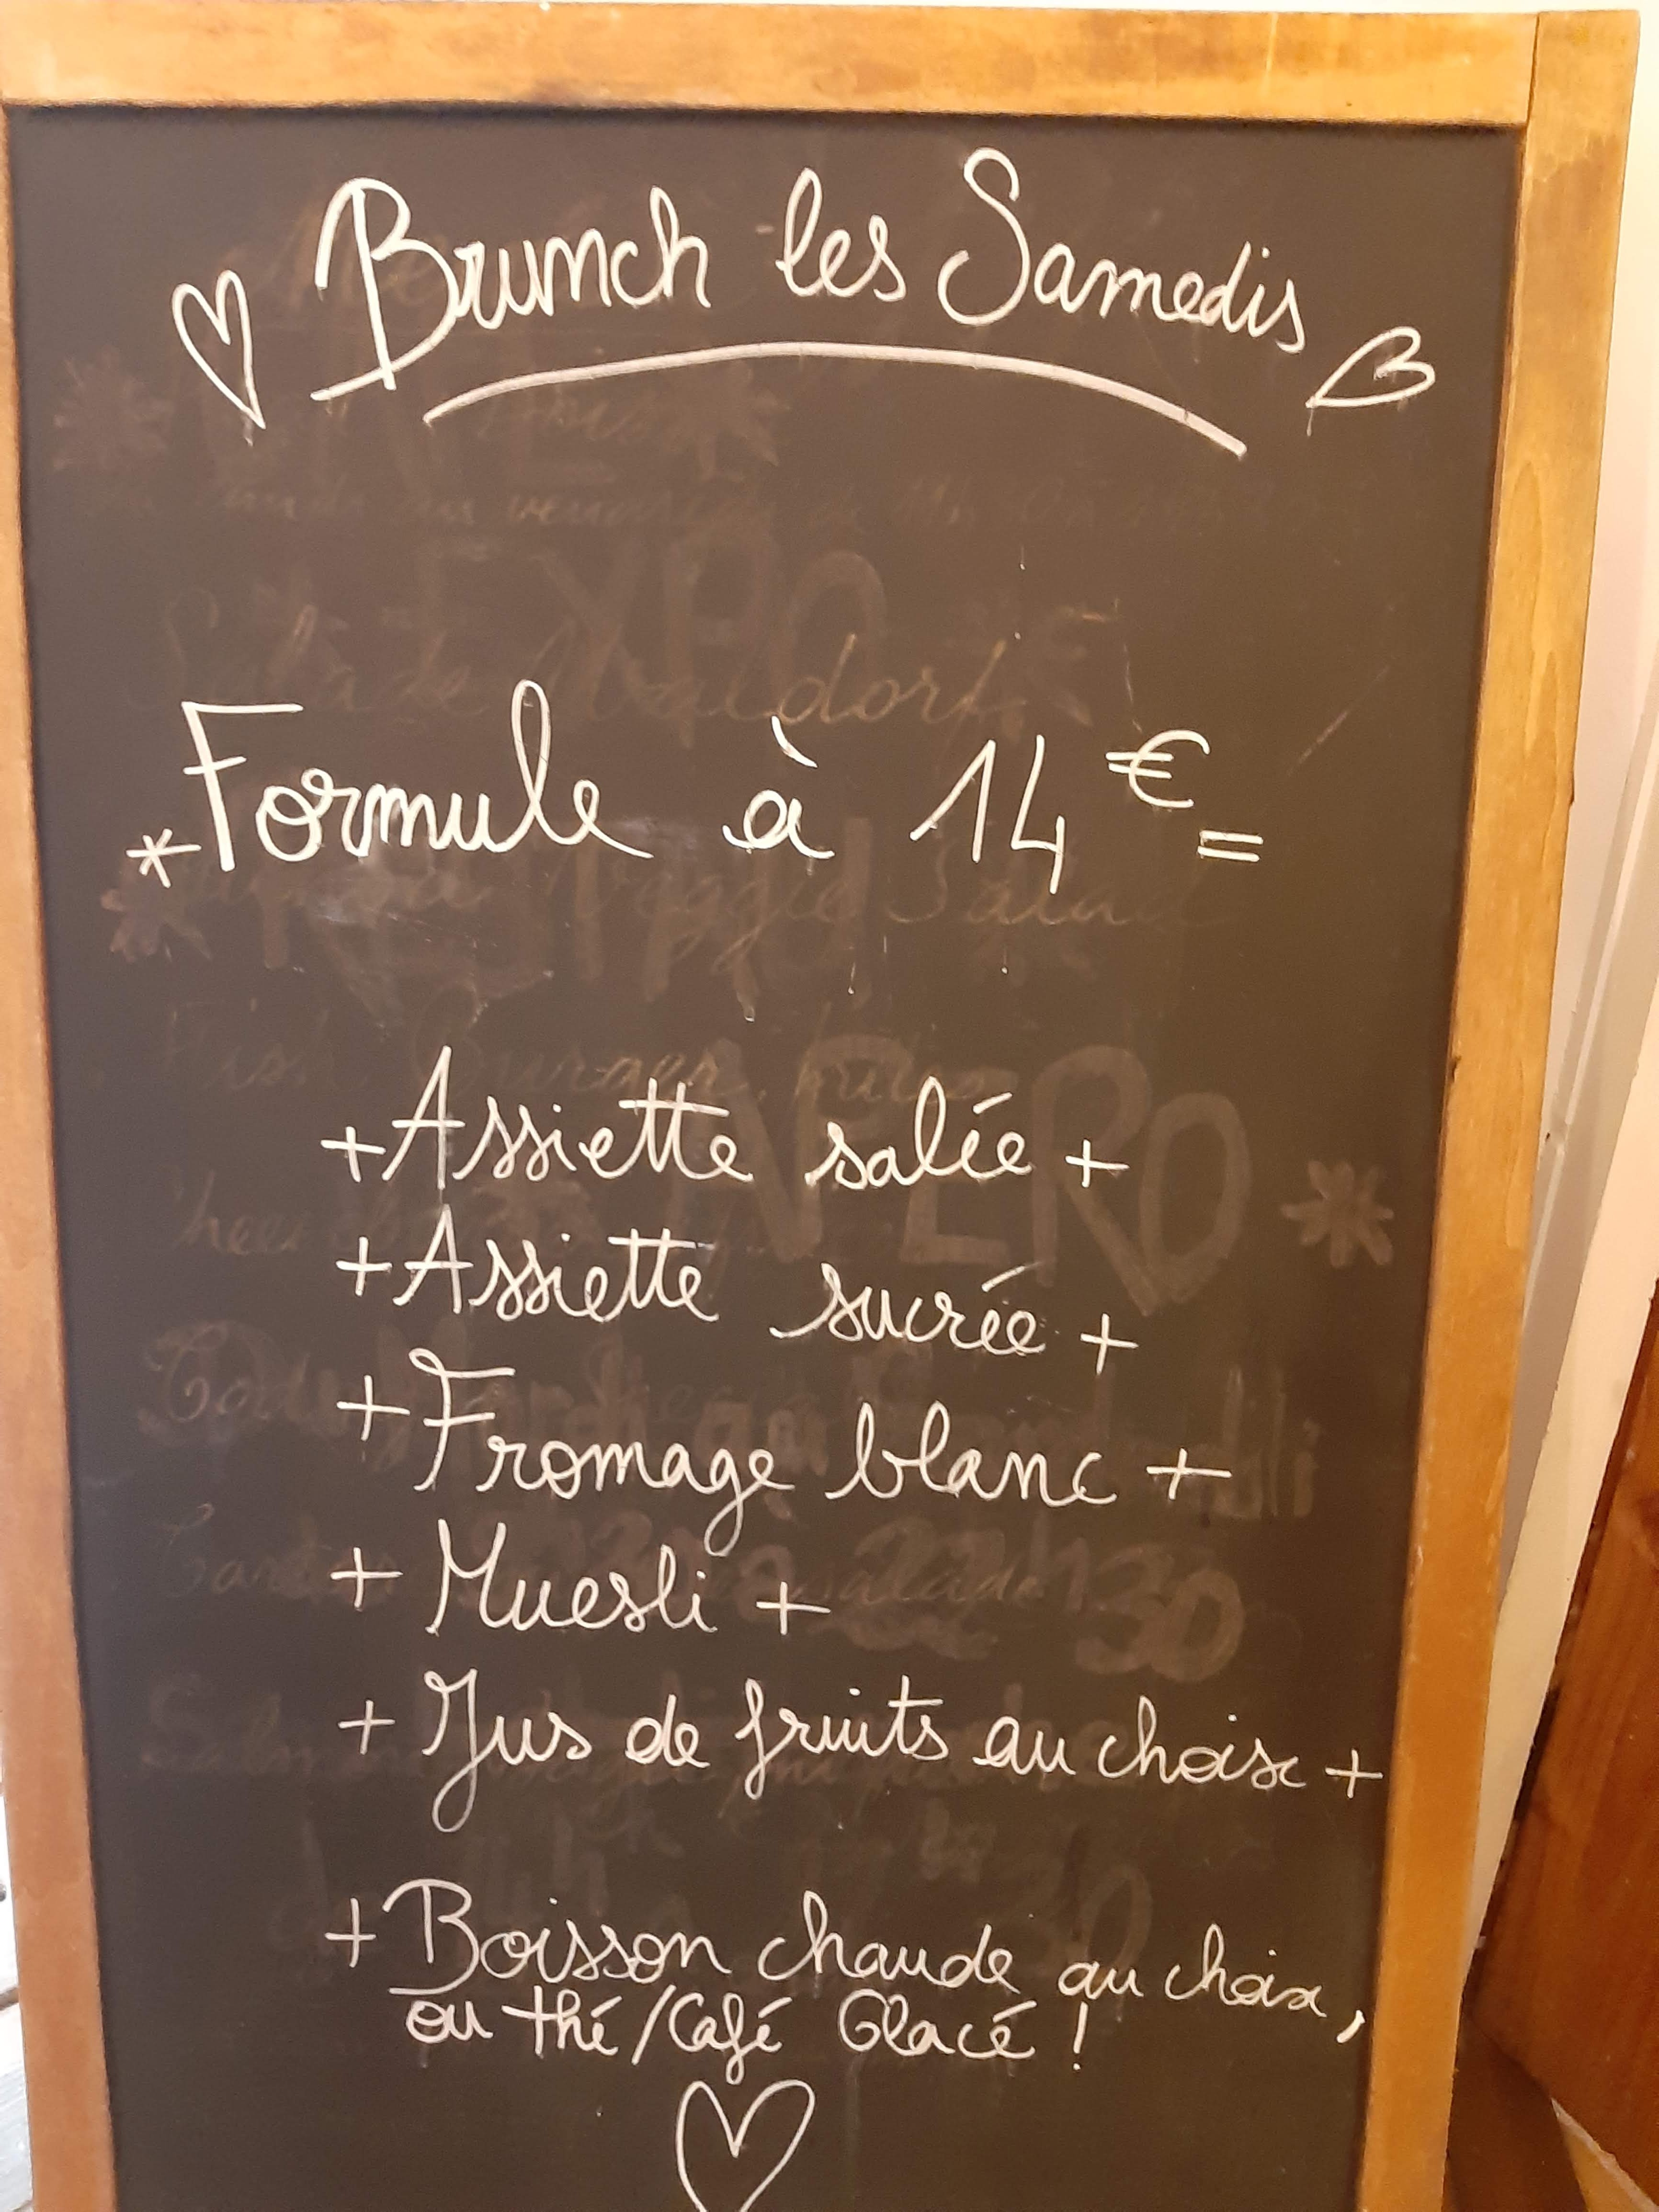 Brunch les Samedis
*Formule à 14€=
+Assiette salée +
+Assiette sucrée +
+Fromage blanc +
+ Muesli +
+ Jus de fruits au choix +
+ Boisson chaude au choix,
ou thé/Café Glacé !